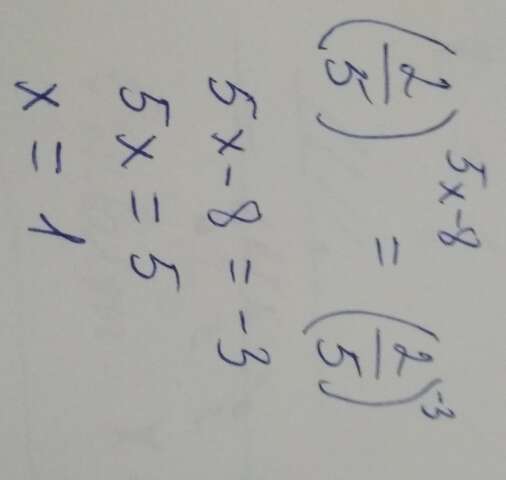 (2/5)^(5x-8) = (2/5)^(-3)
5x-8 = -3
5x = 5
x = 1